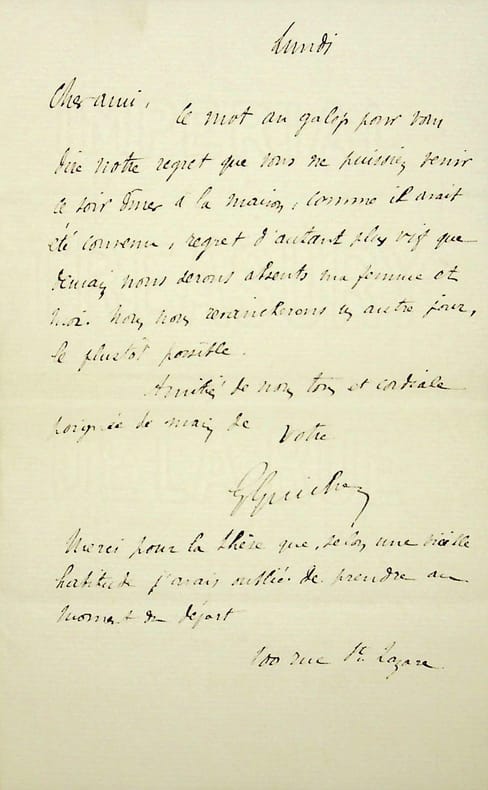 Lundi
Cher ami,
Ce mot au galop pour vous
dire notre regret que vous ne puissiez venir
ce soir dîner à la maison, comme il avait
été convenu, regret d'autant plus vif que
demain nous serons absents ma femme et
moi. Nous nous revancherons un autre jour,
le plustôt possible.
Amitiés de nous tous et cordiale
poignée de main de
votre
Merci pour la thèse que, selon une vieille
habitude j'avais oublié de prendre au
moment du départ
100 rue St. Lazare